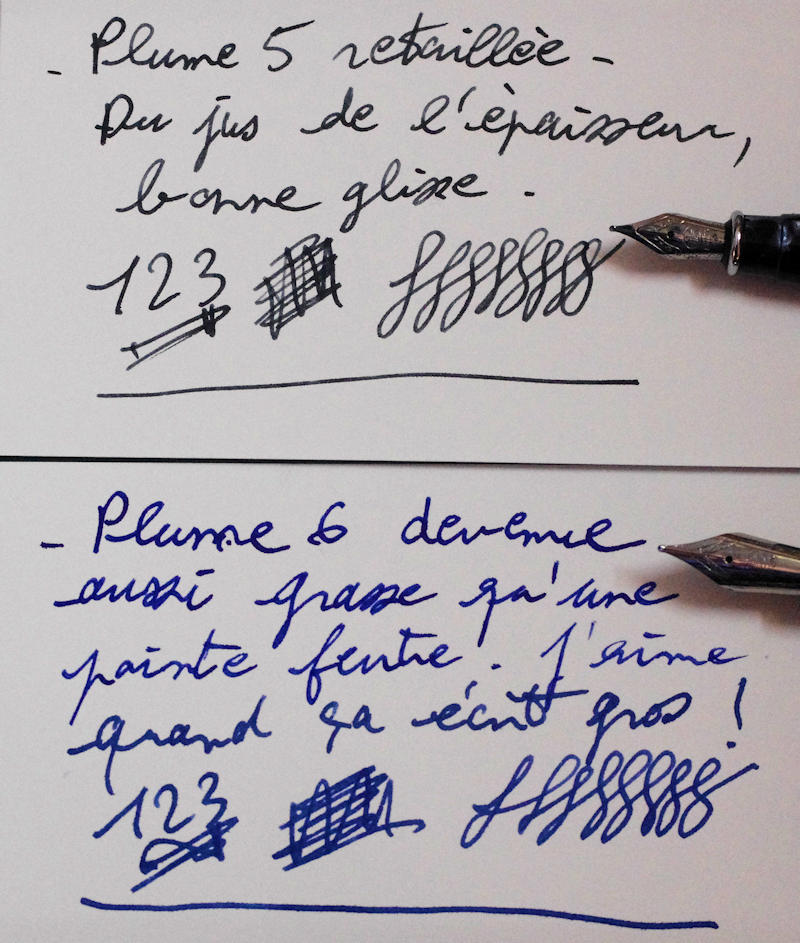 - Plume 5 retaillée -
Du jus de l'épaisseur,
bonne glisse .
123
- Plume 6 devenue
aussi grasse qu'une
pointe feutre . J'aime
quand ça écrit gros !
123